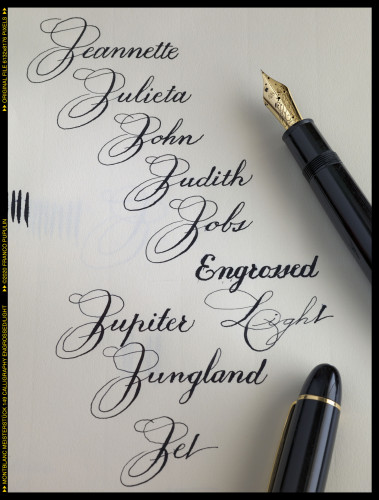 Jeannette
Julieta
John
Judith
Jobs
Engrossed
Light
Jupiter
Jungland
Jet
ORIGINAL FILE 6132x8176 PIXELS
©2020 FRANCO PUPULIN
MONTBLANC MEISTERSTÜCK 149 CALLIGRAPHY ENGROSSED/LIGHT